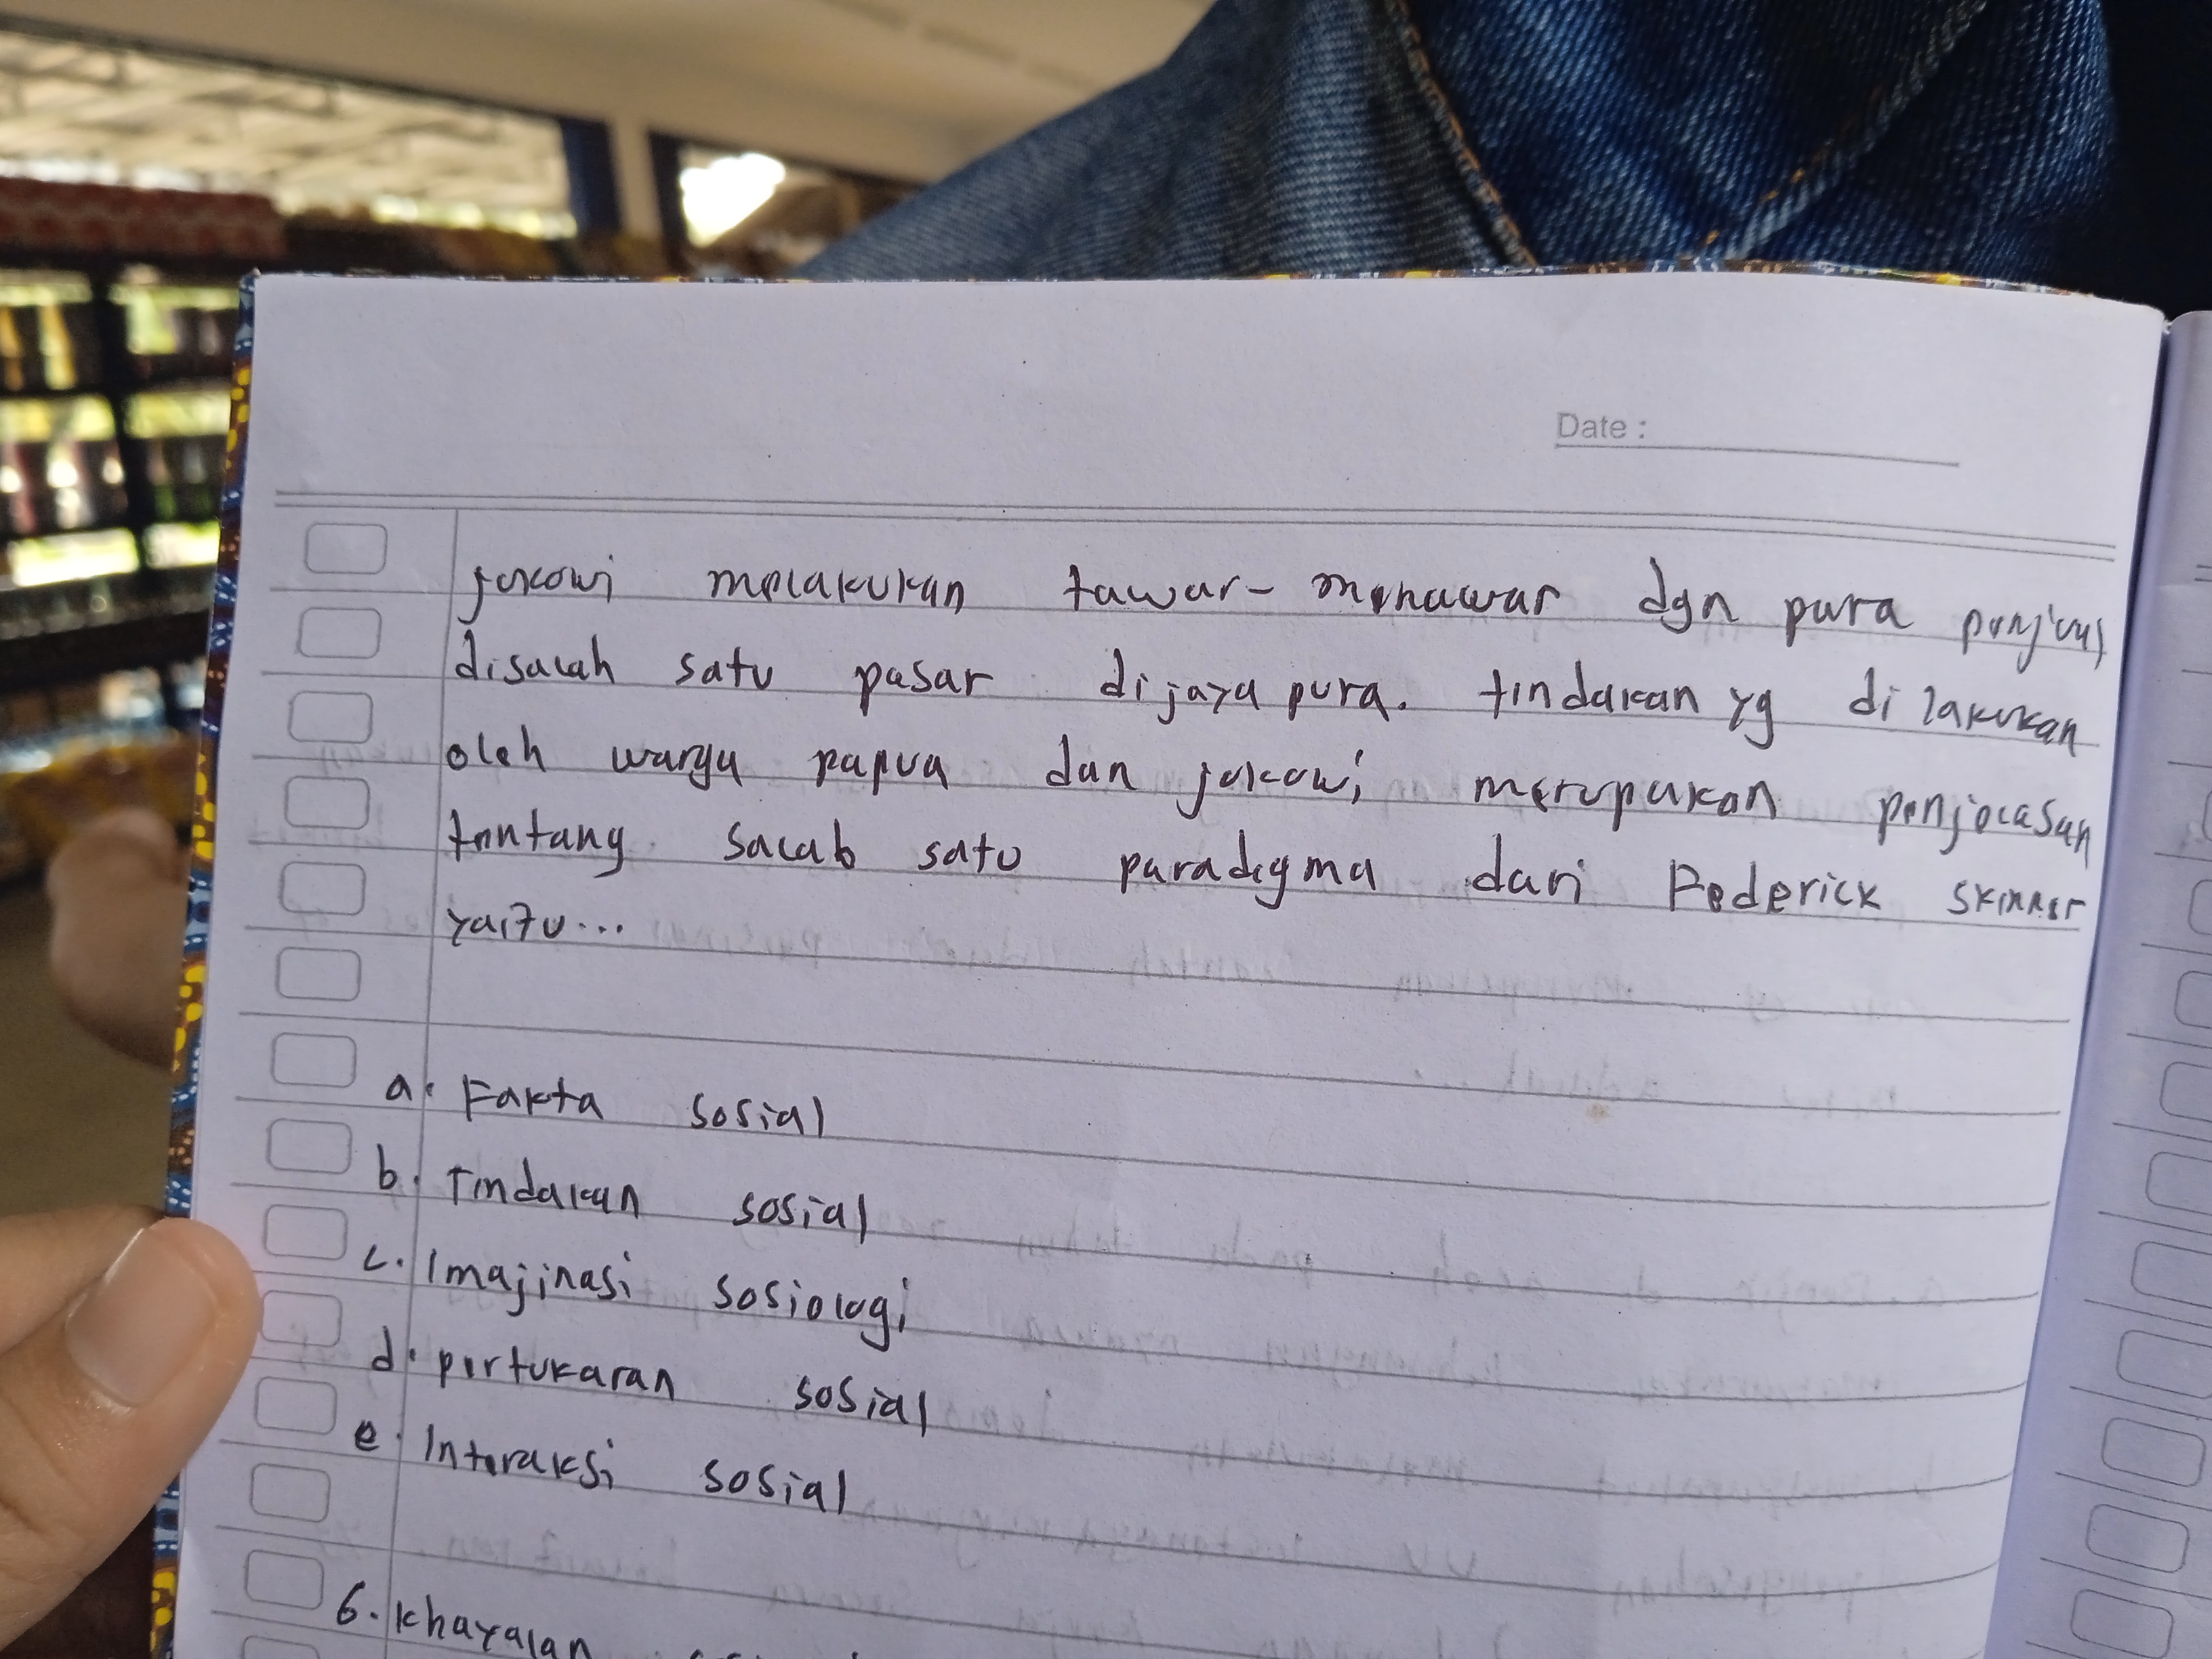 Date :
jokowi melakukan tawar- menawar dgn para penjual
disalah satu pasar dijaya pura. tindakan yg di lakukan
oleh warga papua dan jokowi merupakan penjelasan
tentang salab satu paradigma dari Federick skinner
yaitu...
a. Fakta sosial
b. Tindakan sosial
c. Imajinasi sosiologi
d. pertukaran sosial
e. Interaksi sosial
6. khayalan